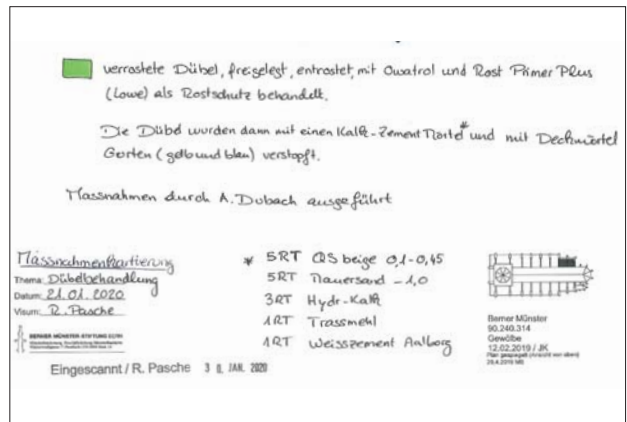 verrostete Dübel, freigelegt, entrostet, mit Owatrol und Rost Primer Plus
(Lowe) als Rostschutz behandelt.
Die Dübel wurden dann mit einen Kalk-Zement Mörtel* und mit Deckmörtel
Gorten (gelb und blau) verstopft.
Massnahmen durch A. Dobach ausgeführt
Massnahmenkartierung
Thema: Dübelbehandlung
Datum: 21.01.2020
Visum: R. Pasche
BERNER MÜNSTER-STIFTUNG
Eingescannt / R. Pasche 30. JAN. 2020
* 5RT QS beige 0,1-0,45
5RT Mauersand -1,0
3RT Hydr-Kalk
1RT Trassmehl
1RT Weisszement Aalborg
Berner Münster
90.240.314
Gewölbe
12.02.2019 / JK
Plan gespiegelt (Ansicht von oben)